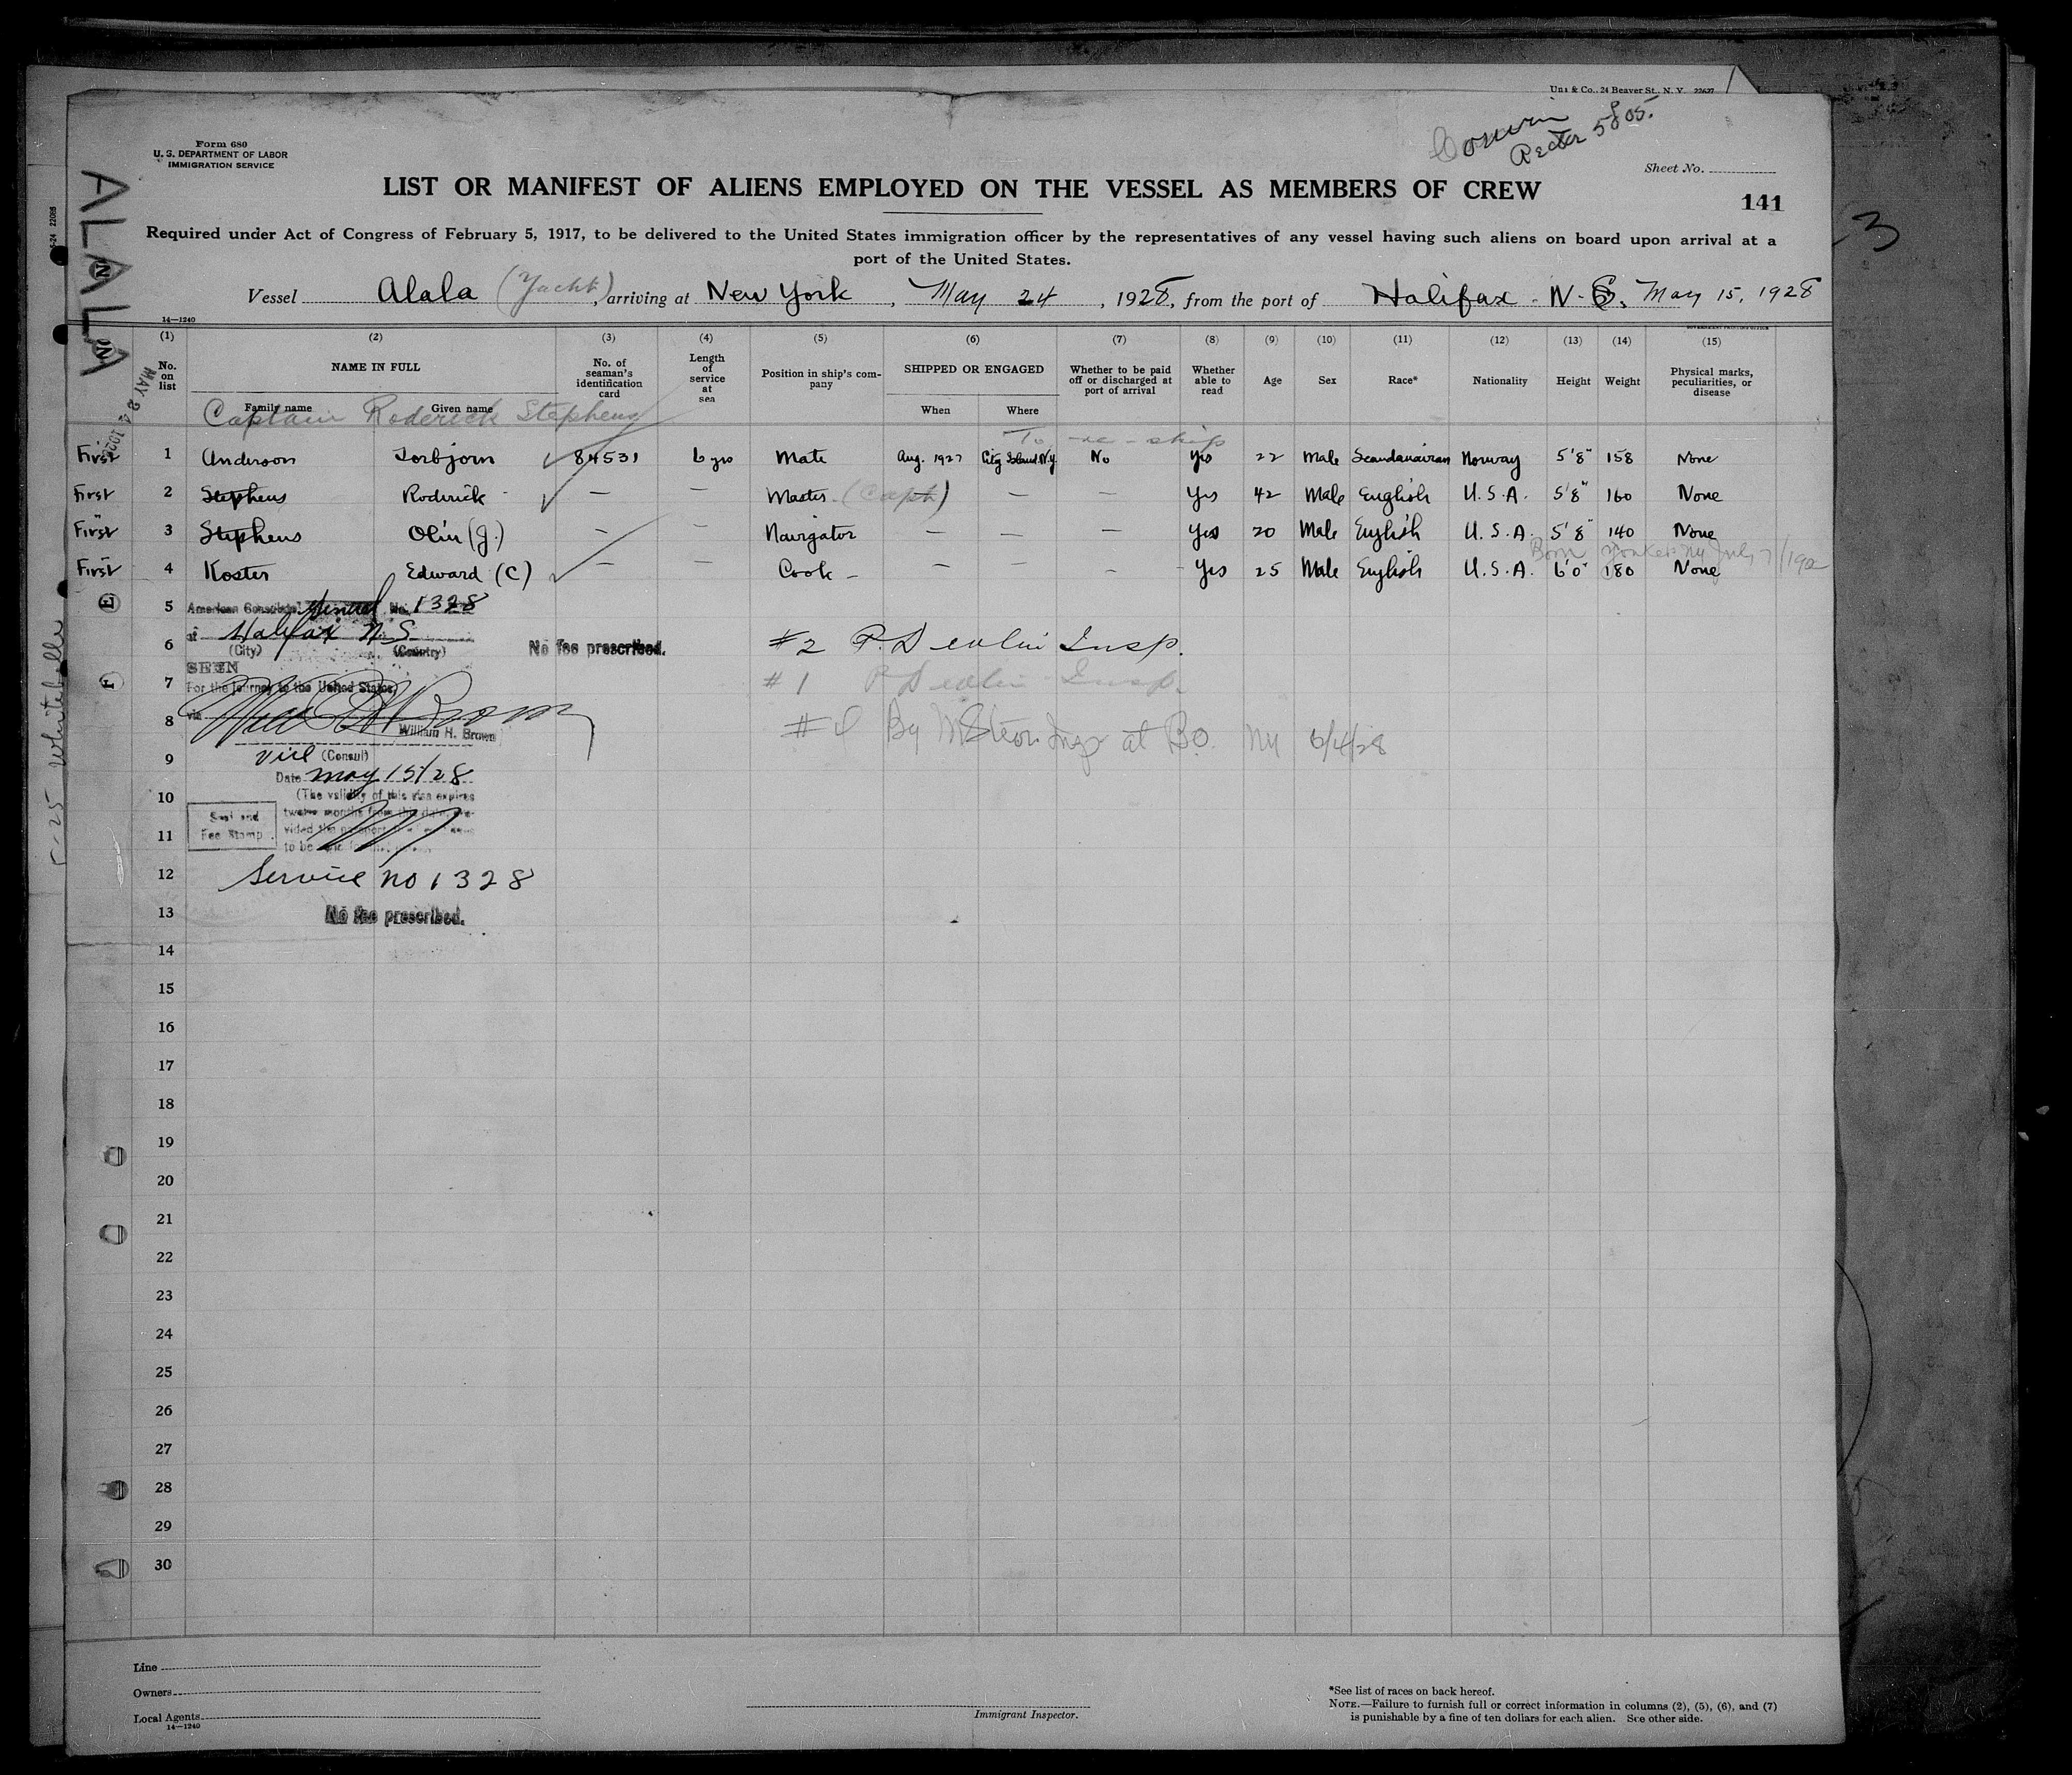 Co., 24 Beaver St., N. Y. 22627
Form 680
U. S. DEPARTMENT OF LABOR
IMMIGRATION SERVICE
5805.
Sheet No.
LIST OR MANIFEST OF ALIENS EMPLOYED ON THE VESSEL AS MEMBERS OF CREW
141
3
ALALA
Required under Act of Congress of February 5, 1917, to be delivered to the United States immigration officer by the representatives of any vessel having such aliens on board upon arrival at a
port of the United States.
Vessel Alala (Yacht), arriving at New York, May 24, 1928, from the port of Halifax - N.S. May 15, 1928
14—1240
(1) (2) (3) (4) (5) (6) (7) (8) (9) (10) (11) (12) (13) (14) (15)
No. on list NAME IN FULL Family name Given name No. of seaman's identification card Length of service at sea Position in ship's company SHIPPED OR ENGAGED When Where Whether to be paid off or discharged at port of arrival Whether able to read Age Sex Race* Nationality Height Weight Physical marks, peculiarities, or disease
MAY 24
Captain Roderick Stephens
To re-ship
First 1 Anderson Torbjorn 84531 6 yrs Mate Aug. 1927 City Island N.Y. No Yes 22 Male Scandanavian Norway 5'8" 158 None
First 2 Stephens Roderick — — Master (Capt) — — — Yes 42 Male English U.S.A. 5'8" 160 None
First 3 Stephens Olin (J.) — — Navigator — — — Yes 20 Male English U.S.A. 5'8 140 None
Born Yonkers Ny July 7/192
First 4 Koster Edward (C) — — Cook — — — — Yes 25 Male English U.S.A. 6'0" 180 None
E
5 American Consulate General No. 1328
at Halifax N.S.
6 (City) (Country) No fee prescribed. #2 P. Devlin Insp.
SEEN
F
7 For the journey to the United States #1 P Devlin Insp.
8 via William H. Brown #4 By Insp at BO. Ny 6/4/28
9 Vice (Consul)
Date May 15/28
10 (The validity of this visa expires
twelve months from this date, pro-
Seal and
Fee Stamp
11 vided the passport
to be
12 Service no 1328
13 No fee prescribed.
14
15
16
17
18
19
20
21
22
23
24
25
26
27
28
29
30
5-25 Whitebelle
Line
Owners
Local Agents
14—1240
Immigrant Inspector.
*See list of races on back hereof.
NOTE.—Failure to furnish full or correct information in columns (2), (5), (6), and (7)
is punishable by a fine of ten dollars for each alien. See other side.